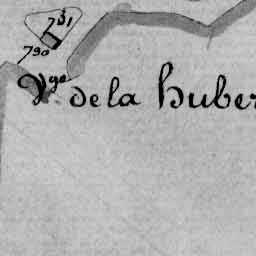 731
790
Vge de la huber